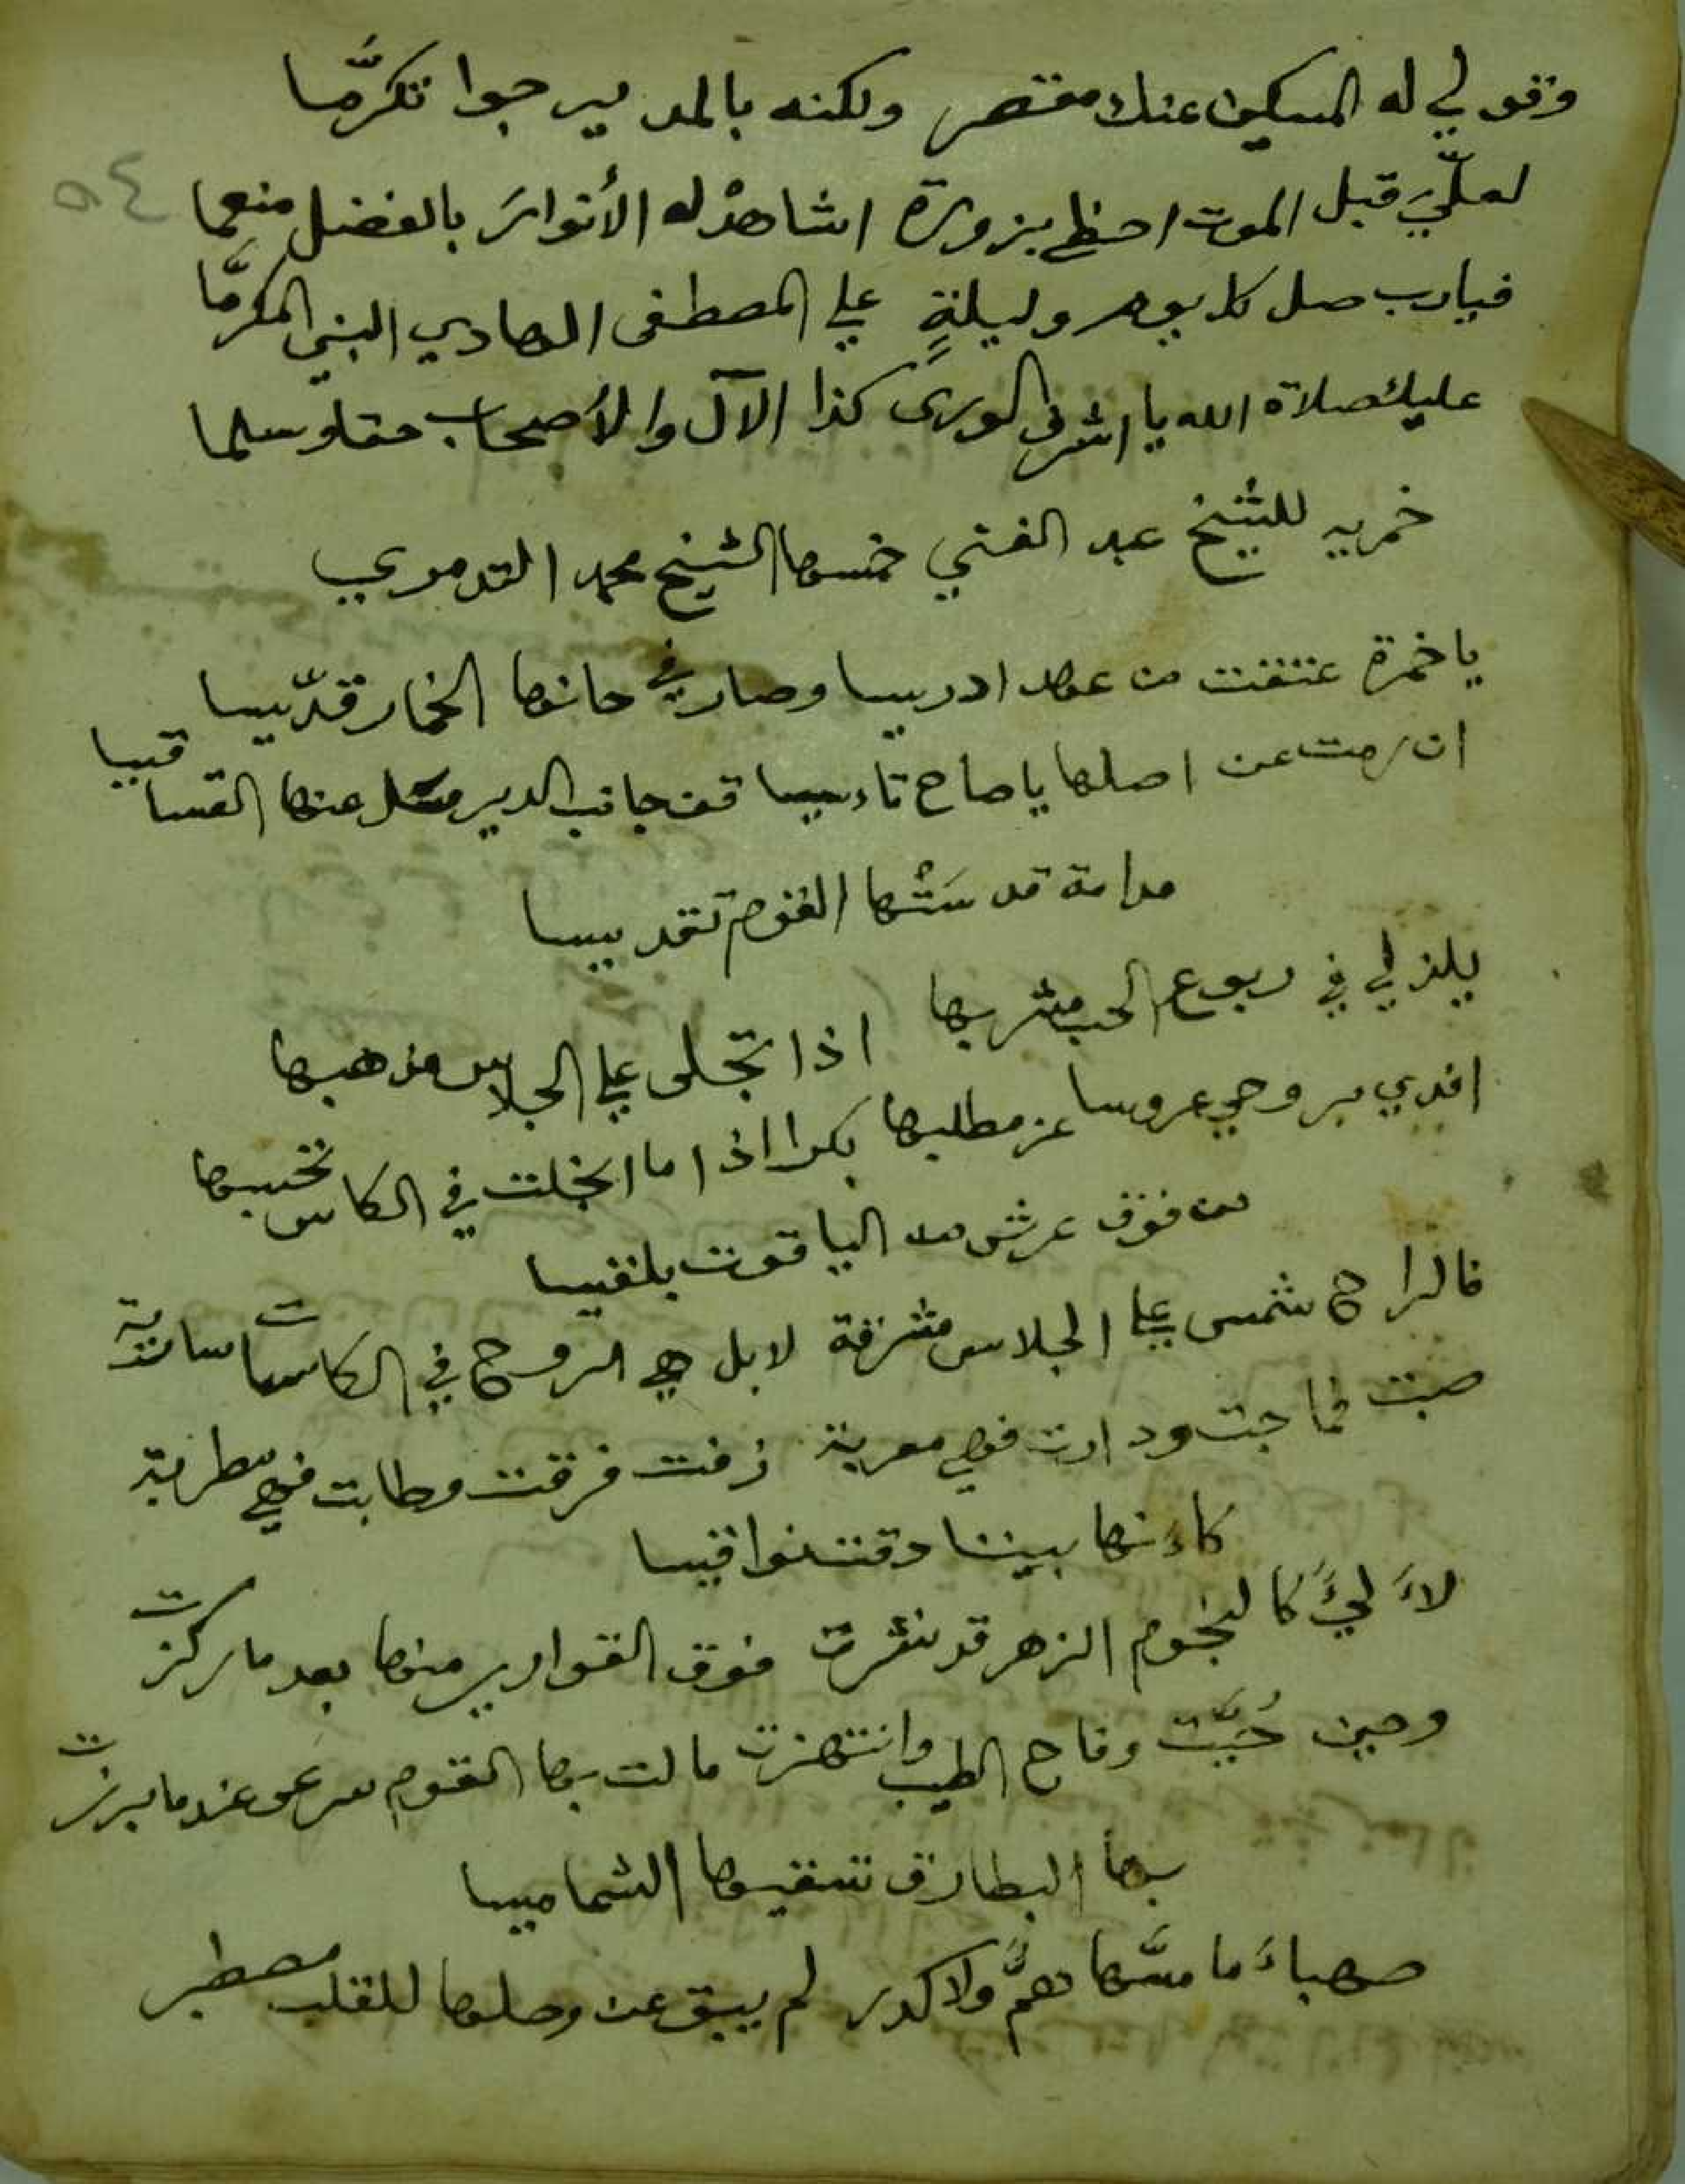 وقولي له المسكين عنك مقتصر ولكنه بالمدير جوا تكرّما
٥٤
لعلّي قبل الموت احظى بزورة اشاهد له الأنوار بالفضل منعما
فيارب صل كل يوم وليلةٍ علي المصطفى الهادي النبي المكرّما
عليك صلاة الله يا اشرف الورى كذا الآل والأصحاب حقا وسلما
خمريه للشيخ عبد الغني خمسها الشيخ محمد التدموري
يا خمرة عتقت من عهد ادريسا وصار في حانها الخمار قدّيسا
ان رمت عن اصلها يا صاح تاءسيسا قف جانب الدير سل عنها القساقيسا
مدامة قدسَتْها القوم تقديسا
يلذ لي في ربوع الحب مشربها اذا تجلى علي الجلاس مذهبها
افدي بروحي عروسا عز مطلبها بكرا اذا ما انجلت في الكاس تحسبها
من فوق عرش من الياقوت بلقيسا
فالراح شمس علي الجلاس مشرفة لا بل هي الروح في الكاسات سارية
صبت فماجت ودارت فهي معربة زفت فرقت وطابت فهي مطربة
كاءنها بيننا دقت نواقيسا
لاءَ ليءً كالنجوم الزهر قد نثرت فوق القوارير منها بعد ما ركزت
وحين حُيَّت وفاح الطيب وانتهزت مالت بها القوم صرعى عندما برزت
بها البطارق تسقيها الشماميسا
صهباءَ ما مسَّها همٌّ ولا كدر لم يبق عن وصلها للقلب مصطبر